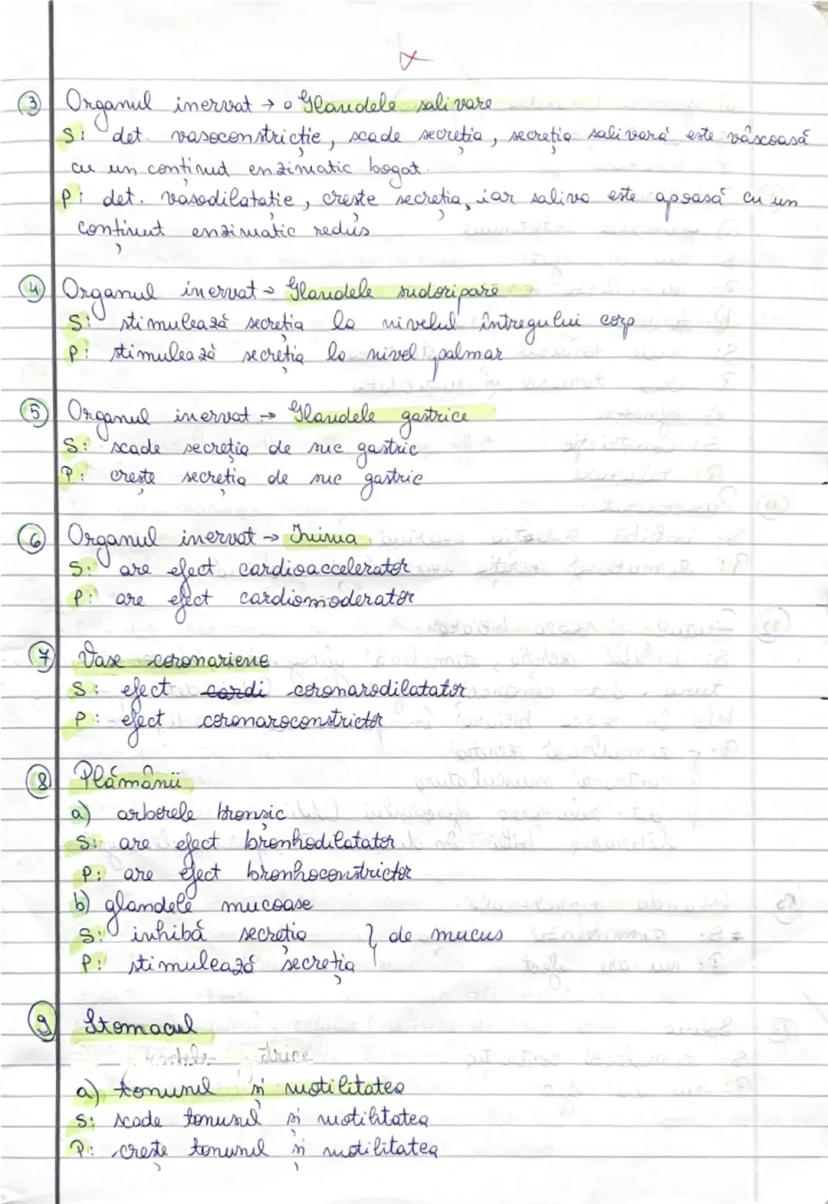 ③ Organul inervat → o Glandele salivare
S: det. vasoconstricție, scade secreția, secreția salivară este vâscoasă
cu un conținut enzimatic bogat.
P: det. vasodilatatie, crește secreția, iar saliva este apoasă cu un
conținut enzimatic redus
④ Organul inervat → Glandele sudoripare
S: stimulează secreția la nivelul întregului corp
P: stimulează secreția la nivel palmar
⑤ Organul inervat → Glandele gastrice
S: scade secreția de suc gastric
P: crește secreția de suc gastric
⑥ Organul inervat → Inima
S: are efect cardioaccelerator
P: are efect cardiomoderator
⑦ Vase coronariene
S: efect cardi coronarodilatator
P: efect coronaroconstrictor
⑧ Plămânii
a) arborele bronșic
S: are efect bronhodilatator
P: are efect bronhoconstrictor
b) glandele mucoase
S: inhibă secreția } de mucus
P: stimulează secreția
⑨ Stomacul
a) tonusul și motilitatea
S: scade tonusul și motilitatea
P: crește tonusul și motilitatea